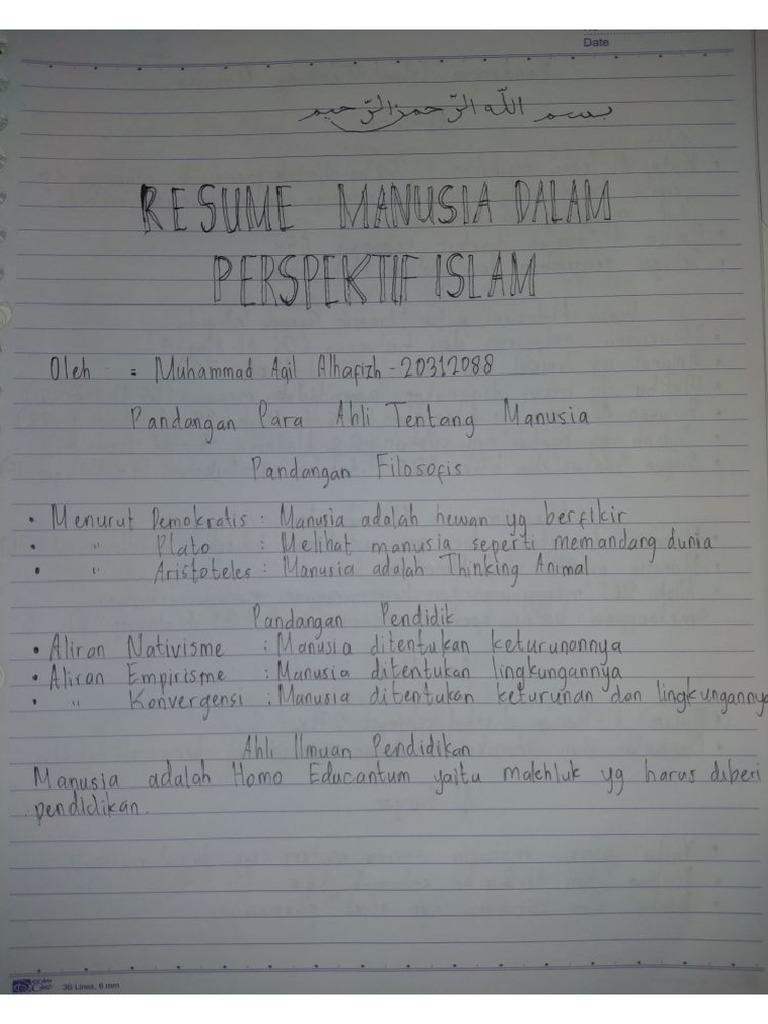 Date
بسم الله الرّحمن الرّحيم
RESUME MANUSIA DALAM
PERSPEKTIF ISLAM
Oleh : Muhammad Aqil Alhafizh - 20312088
Pandangan Para Ahli Tentang Manusia
Pandangan Filosofis
• Menurut Demokratis : Manusia adalah hewan yg berfikir
• " Plato : Melihat manusia seperti memandang dunia
• " Aristoteles : Manusia adalah Thinking Animal
Pandangan Pendidik
• Aliran Nativisme : Manusia ditentukan keturunannya
• Aliran Empirisme : Manusia ditentukan lingkungannya
• " Konvergensi : Manusia ditentukan keturunan dan lingkungannya
Ahli Ilmuan Pendidikan
Manusia adalah Homo Educantum yaitu makhluk yg harus diberi
pendidikan.
36 Lines, 6 mm